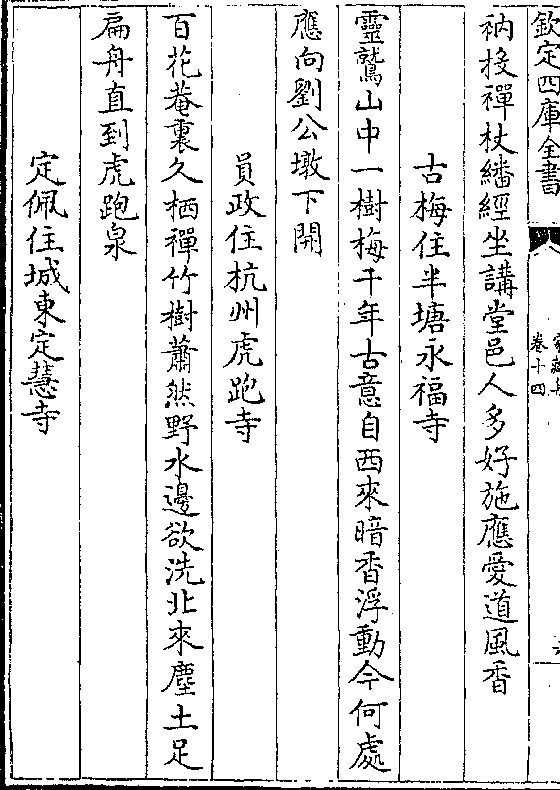 欽定四庫全書
卷十四
衲挍禪杖繙經坐講堂邑人多好施應愛道風香
古梅住半塘永福寺
靈鷲山中一樹梅千年古意自西來暗香浮動今何處
應向劉公墩下開
員政住杭州虎跑寺
百花菴裏久栖禪竹樹蕭然野水邊欲洗北來塵土足
扁舟直到虎跑泉
定佩住城東定慧寺